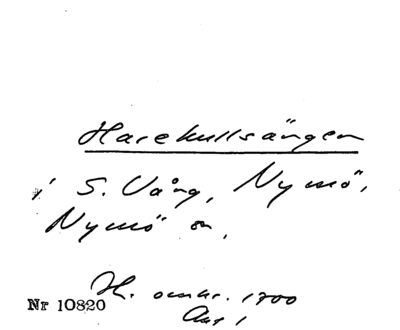 Harekullsängen
i S. Vång, Nymö,
Nymö sn.
H. omkr. 1700
Akt 1
Nr 10820